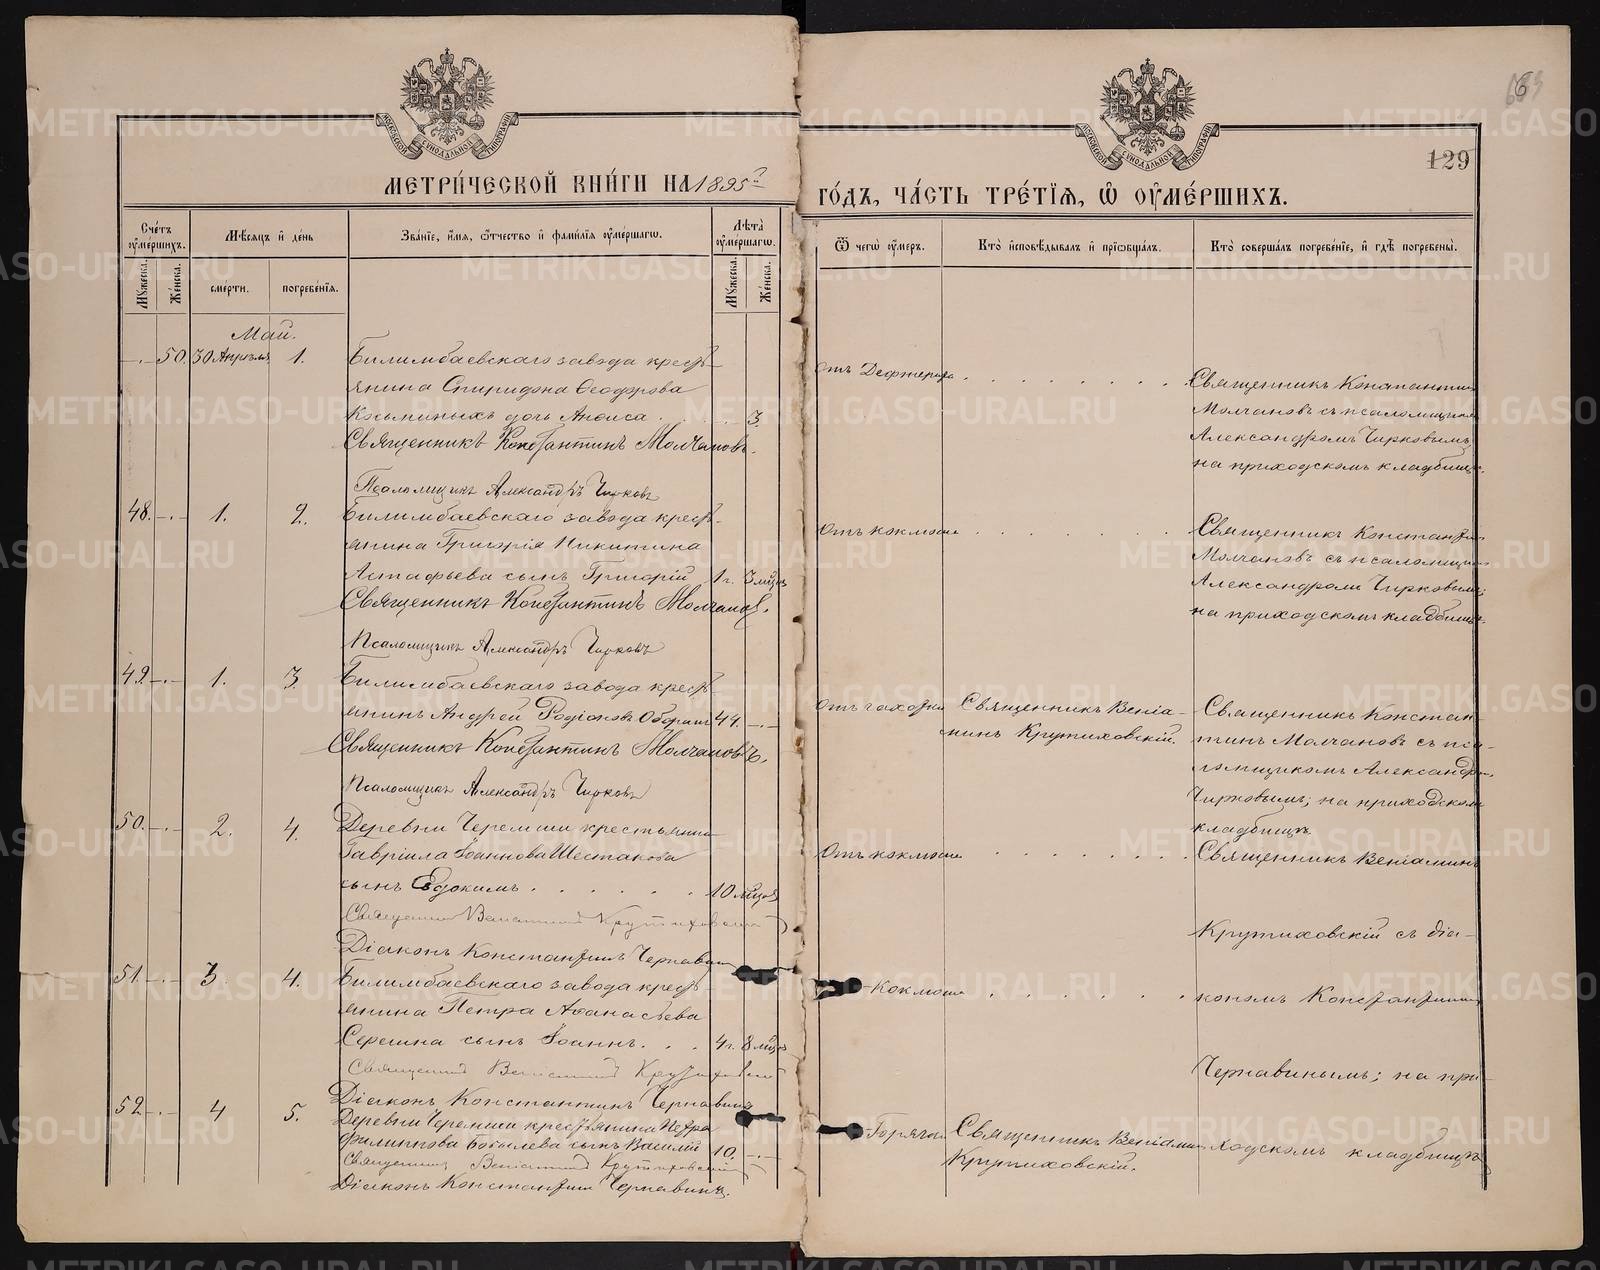 МЕТРИ́ЧЕСКОЙ КНИ́ГИ НА 1895й
ГО́ДЪ, ЧА́СТЬ ТРЕ́ТЇЯ, Ѽ ОУМЕ́РШИХЪ.
129
МОСКОВСКОЙ СѴНОДАЛЬНОЙ ТИПОГРАФІИ
МОСКОВСКОЙ СѴНОДАЛЬНОЙ ТИПОГРАФІИ
Сче́тъ оуме́ршихъ.
Му́жеска.
Же́нска.
Мѣ́сяцъ и де́нь
сме́рти.
погребе́нїя.
Зва́нїе, и́мя, ѻ́тчество и фами́лїя оуме́ршагѡ.
Лѣ́та оуме́ршагѡ.
Му́жеска.
Же́нска.
Ѿ чегѡ̀ оу́меръ.
Кто̀ и҆сповѣ́дывалъ и҆ прїѡбща́лъ.
Кто̀ соверша́лъ погребе́нїе, и҆ гдѣ̀ погребены̀.
Май.
50. 30 Апрѣля 1. Билимбаевскаго завода кресть-
янина Спиридона Ѳеодорова
Козьминыхъ дочь Анѳиса . . . 3.
Священникъ Константинъ Молчановъ.
Псаломщикъ Александръ Чирковъ
отъ Дефтерита
Священникъ Константинъ
Молчановъ съ псаломщикомъ
Александромъ Чирковымъ
на приходскомъ кладбищѣ.
48. 1. 2. Билимбаевскаго завода кресть-
янина Григорія Никитина
Астафьева сынъ Григорій 1 г. 3 мѣсц
Священникъ Константинъ Молчановъ.
Псаломщикъ Александръ Чирковъ
Отъ коклюша
Священникъ Константинъ
Молчановъ съ псаломщикомъ
Александромъ Чирковымъ;
на приходскомъ кладбищѣ.
49. 1. 3. Билимбаевскаго завода кресть-
янинъ Андрей Родіоновъ 44.
Священникъ Константинъ Молчановъ.
Псаломщикъ Александръ Чирковъ
Отъ чахотки
Священникъ Веніа-
минъ Крутиховскій.
Священникъ Констан-
тинъ Молчановъ съ пса-
ломщикомъ Александр.
Чирковымъ; на приходскомъ
кладбищѣ.
50. 2. 4. Деревни Черемши крестьянина
Гавріила Іоаннова Шестакова
сынъ Евдокимъ . . . . . . 10 мѣсцов
Священникъ Веніаминъ Крутиховскій
Діаконъ Константинъ Чернавинъ
Отъ коклюша
Священникъ Веніаминъ
Крутиховскій съ діа-
кономъ Константиномъ
Чернавинымъ; на при-
ходскомъ кладбищѣ
51. 3. 4. Билимбаевскаго завода кресть-
янина Петра Аѳанасьева
Серегина сынъ Іоаннъ . . . 4 г. 8 мѣсц
Священникъ Веніаминъ Крутиховскій
Діаконъ Константинъ Чернавинъ
Коклюша
52. 4 5. Деревни Черемши крестьянина Петра
Филиппова сынъ Василій 10.
Священникъ Веніаминъ Крутиховскій
Діаконъ Константинъ Чернавинъ.
Горячки
Священникъ Веніамин
Крутиховскій.
METRIKI.GASO-URAL.RU